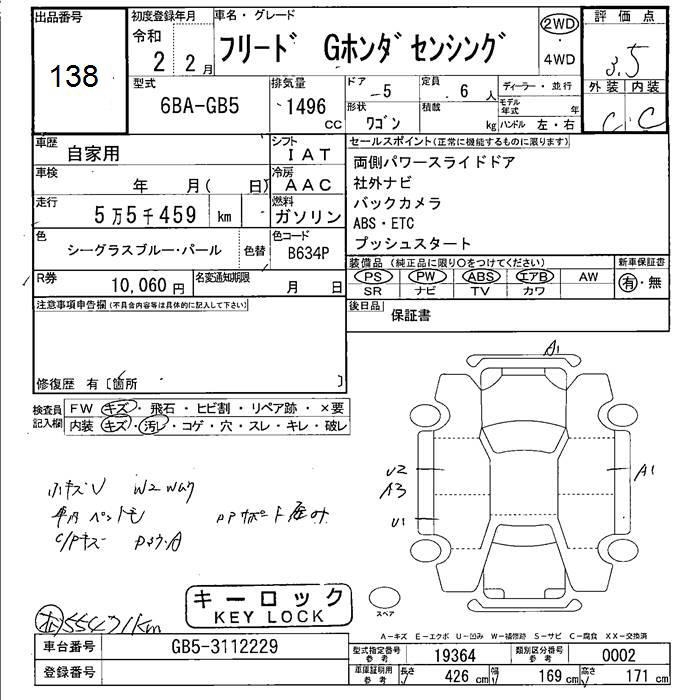 出品番号
138
初度登録年月
令和
2 2月
車名・グレード
フリード Gホンダセンシング
2WD
4WD
評価点
3.5
外装 内装
C C
型式
6BA-GB5
排気量
1496
CC
ドア
5
定員
6 人
ディーラー・並行
モデル年式 年
形状
ワゴン
積載
kg
ハンドル 左・右
車歴
自家用
シフト
IAT
車検
年 月( 日)
冷房
AAC
走行
5万5千459 km
燃料
ガソリン
色
シーグラスブルー・パール
色替
色コード
B634P
R券
10,060 円
名変通知期限
月 日
セールスポイント(正常に機能するものに限ります)
両側パワースライドドア
社外ナビ
バックカメラ
ABS・ETC
プッシュスタート
装備品(純正品に限り○をつけてください)
新車保証書
PS PW ABS エアB AW
SR ナビ TV カワ
有・無
後日品
保証書
注意事項申告欄(不具合内容等は具体的に記入して下さい)
修復歴 有〔箇所 〕
検査員記入欄
FW キズ・飛石・ヒビ割・リペア跡・×要
内装 キズ・汚レ・コゲ・穴・スレ・キレ・破レ
A1
U2
A3
U1
A1
スペア
キーロック
KEY LOCK
55471km
A-キズ E-エクボ U-凹み W-補修跡 S-サビ C-腐食 XX-交換済
車台番号
GB5-3112229
登録番号
型式指定番号 参考
19364
類別区分番号 参考
0002
車庫証明用 参考
長さ 426 cm
幅 169 cm
高さ 171 cm